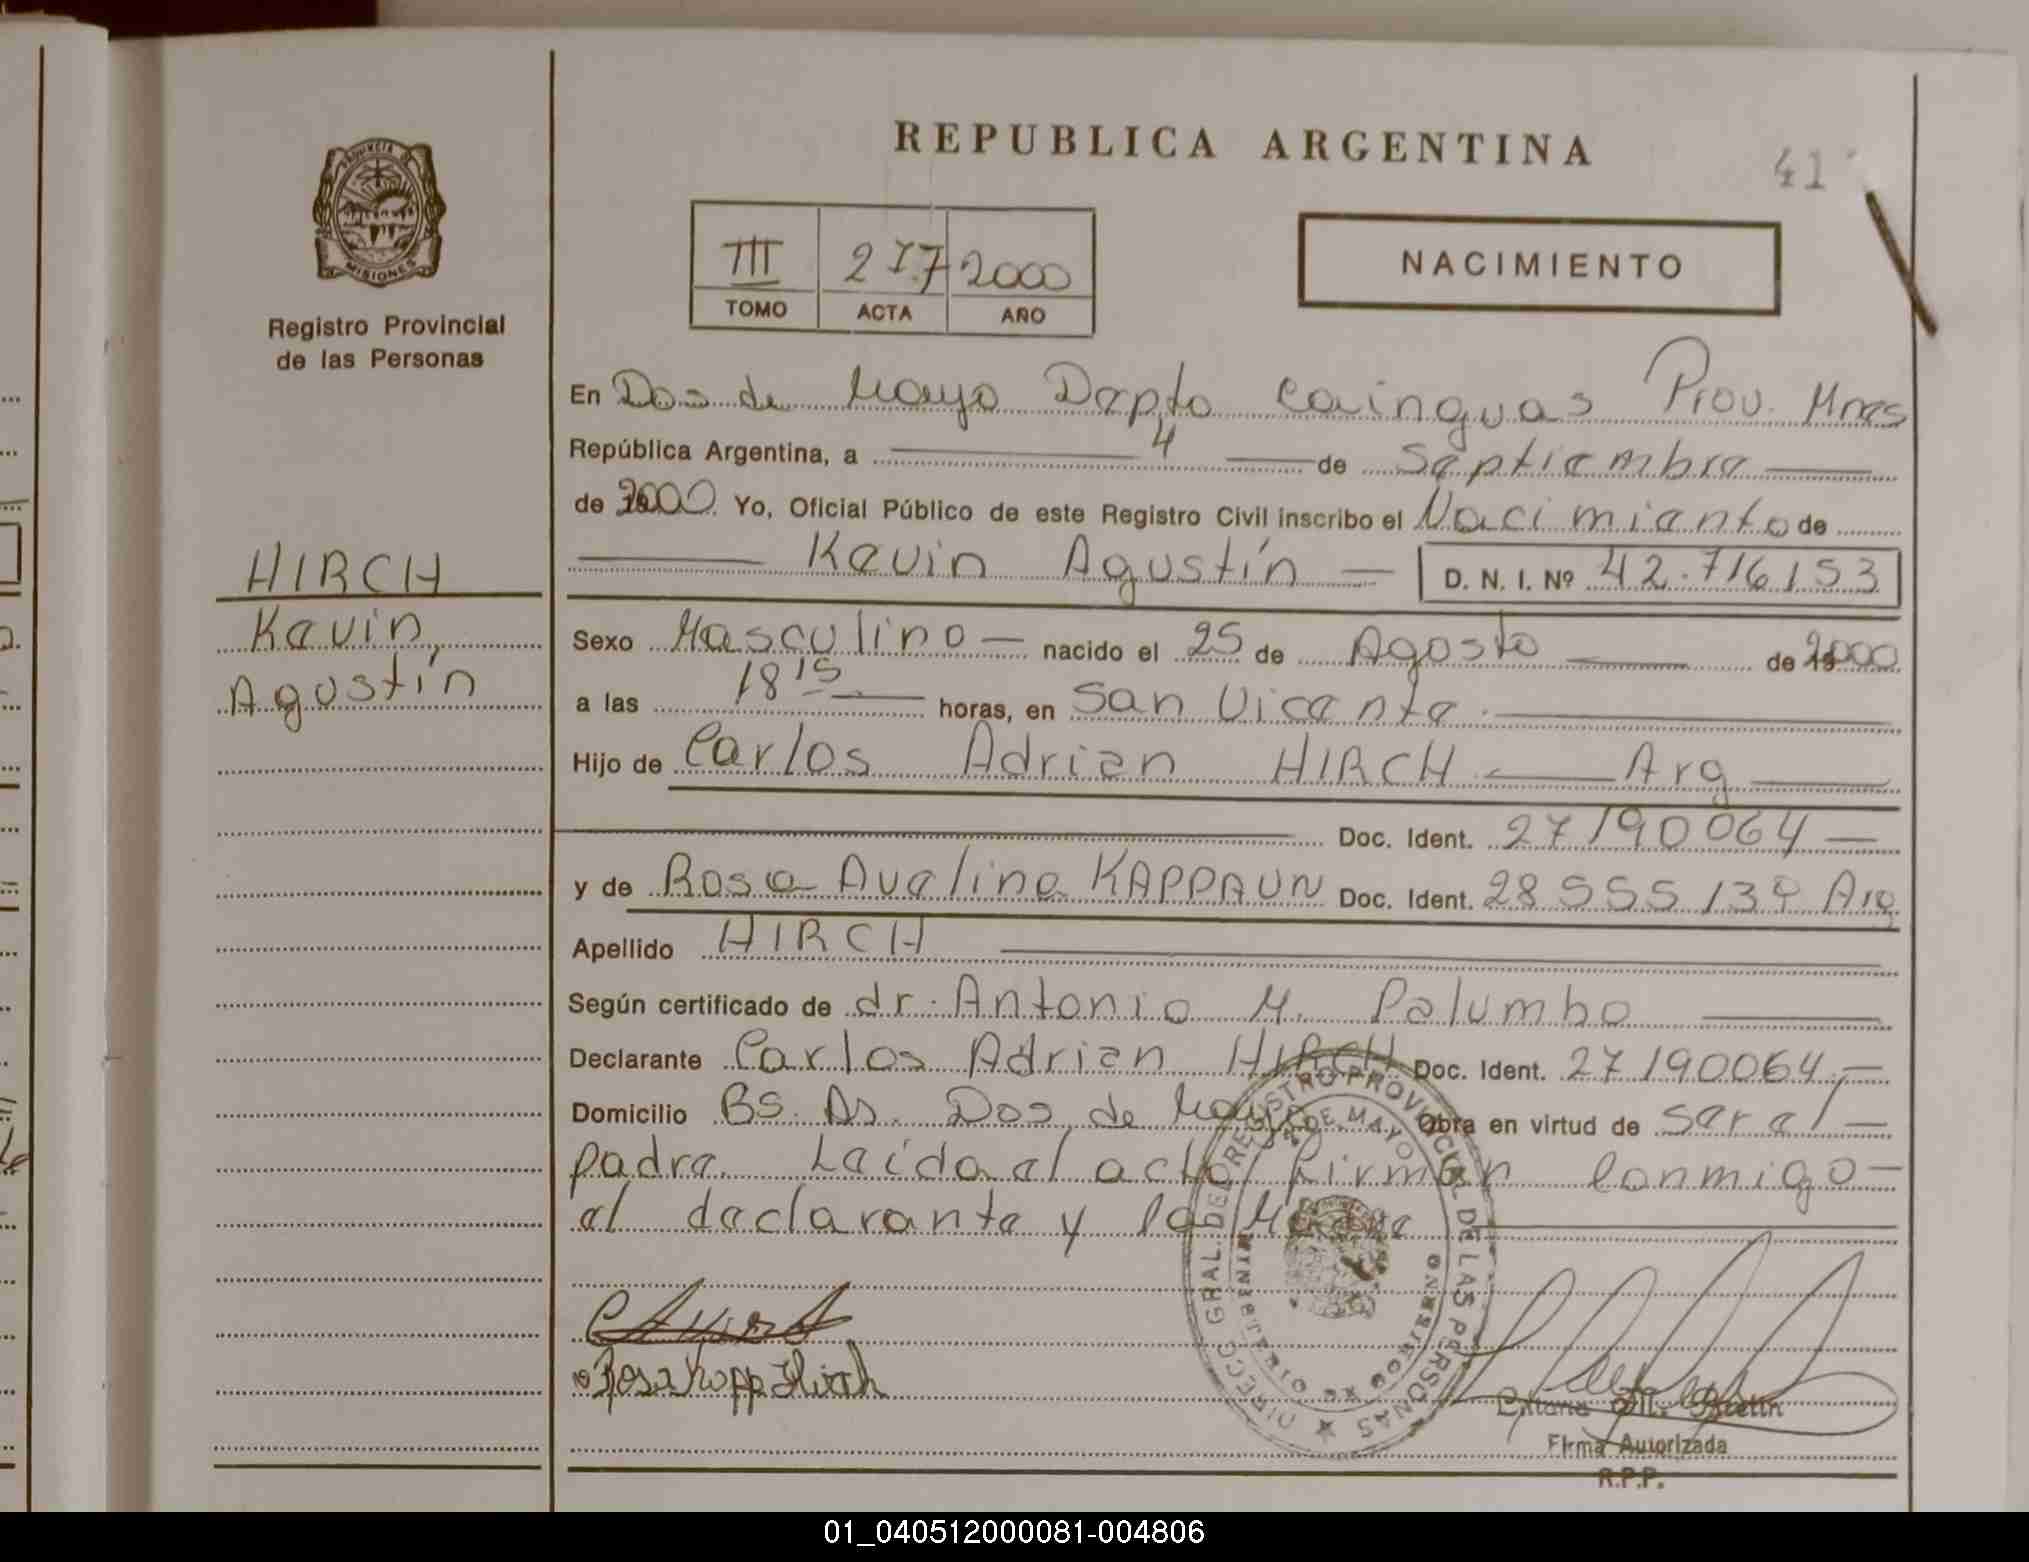 REPUBLICA ARGENTINA
41
PROVINCIA DE
MISIONES
Registro Provincial
de las Personas
III 277 2000
TOMO ACTA AÑO
NACIMIENTO
En Dos de Mayo Depto Cainguas Prov. Mnes
República Argentina, a 4 de Septiembre
de 2000 Yo, Oficial Público de este Registro Civil inscribo el Nacimiento de
Kevin Agustín D. N. I. Nº 42.716.153
HIRCH
Kevin
Agustín
Sexo Masculino nacido el 25 de Agosto de 2000
a las 18 15 horas, en San Vicente
Hijo de Carlos Adrian HIRCH Arg
Doc. Ident. 27190064
y de Rosa Avelina KAPPAUN Doc. Ident. 28555139 Arg
Apellido HIRCH
Según certificado de dr. Antonio M. Palumbo
Declarante Carlos Adrian HIRCH Doc. Ident. 27190064
Domicilio BS. AS. Dos de Mayo Obra en virtud de ser el
padre. Leída el acta firman Conmigo
el declarante y la Madre
DIRECC. GRAL. DEL REGISTRO PROVINCIAL DE LAS PERSONAS
DE MAYO
Rosa Kapp Hirch
Firma Autorizada
R.P.P.
01_040512000081-004806